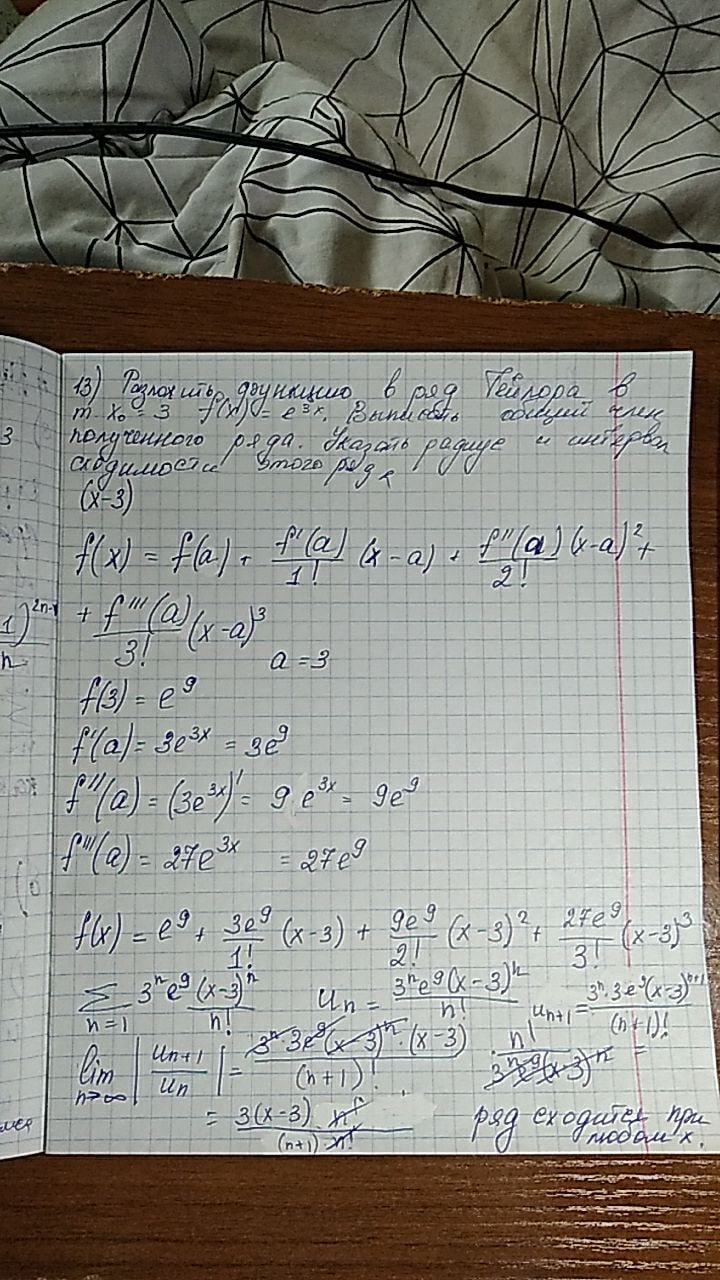 13) Разложить функцию в ряд Тейлора в
т. x₀ = 3 f(x) = e^{3x}. Выписать общий член
полученного ряда. Указать радиус и интервал
сходимости этого ряда
(x-3)
f(x) = f(a) + f'(a)/1! (x-a) + f''(a)/2! (x-a)² +
+ f'''(a)/3! (x-a)³
a = 3
f(3) = e⁹
f'(a) = 3e^{3x} = 3e⁹
f''(a) = (3e^{3x})' = 9 e^{3x} = 9e⁹
f'''(a) = 27e^{3x} = 27e⁹
f(x) = e⁹ + 3e⁹/1! (x-3) + 9e⁹/2! (x-3)² + 27e⁹/3! (x-3)³
∑ n=1 3ⁿe⁹(x-3)ⁿ/n! Un = 3ⁿe⁹(x-3)ⁿ/n! Un+1 = 3ⁿ·3e⁹(x-3)^{n+1}/(n+1)!
lim n→∞ |Un+1/Un| = 3ⁿ·3e⁹(x-3)ⁿ·(x-3)/(n+1)! · n!/3ⁿe⁹(x-3)ⁿ =
= 3(x-3) n!/(n+1) n! ряд сходится при
любом x.